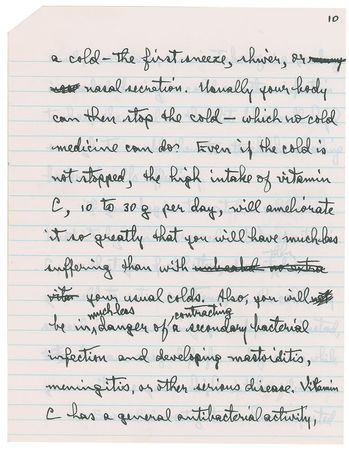 10
a cold – the first sneeze, shiver, or
nasal secretion. Usually your body
can then stop the cold – which no cold
medicine can do? Even if the cold is
not stopped, the high intake of vitamin
C, 10 to 30 g per day, will ameliorate
it so greatly that you will have much less
suffering than with
your usual colds. Also, you will
much less contracting
be in, danger of a secondary bacterial
infection and developing mastoiditis,
meningitis, or other serious disease. Vitamin
C has a general antibacterial activity,